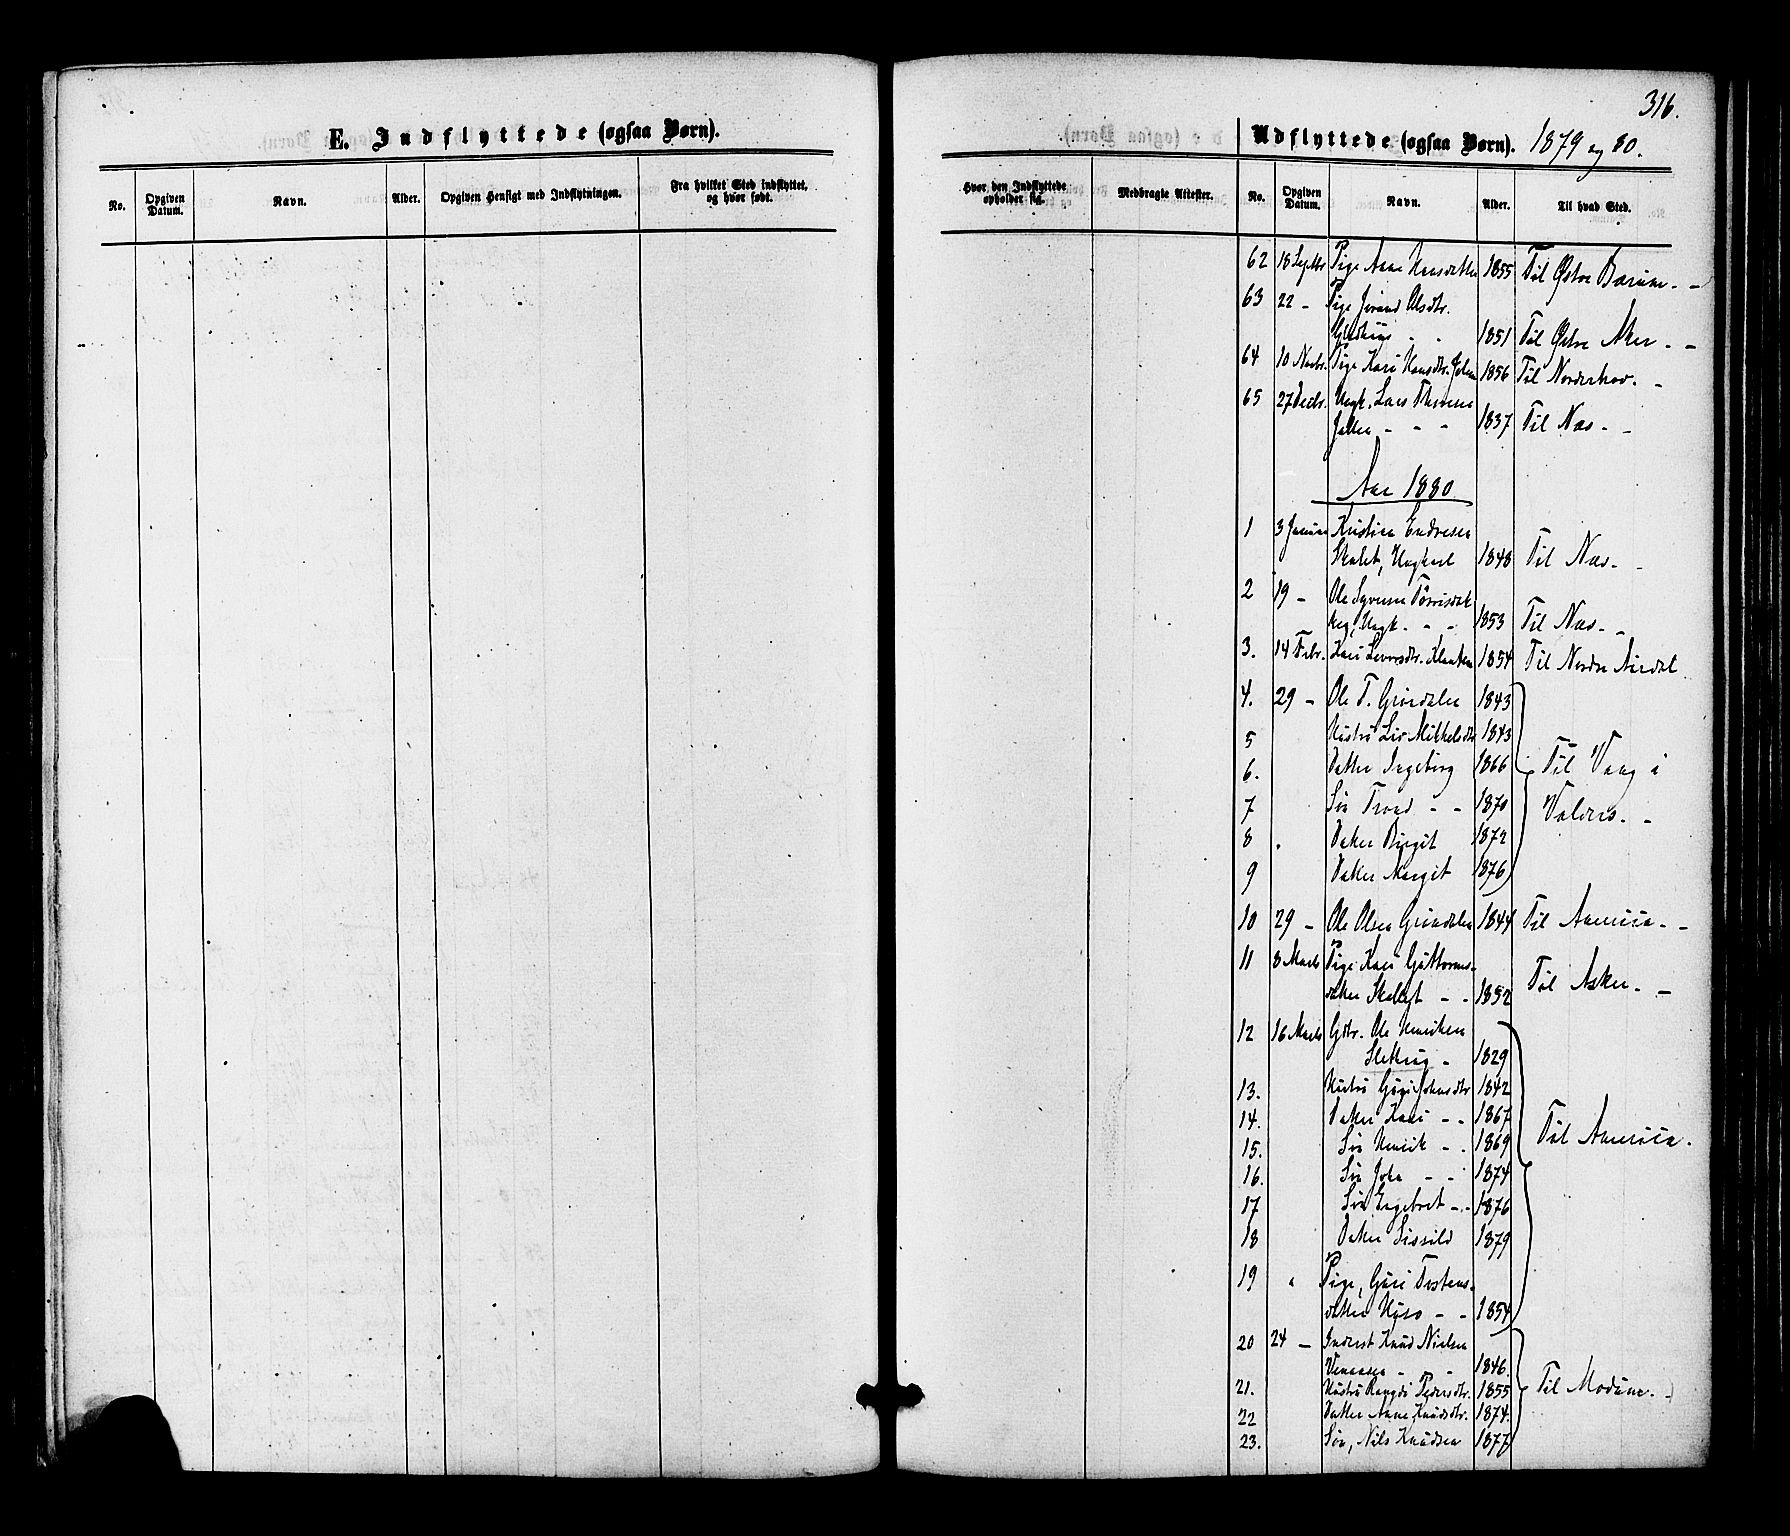 316.
E. Indflyttede (ogsaa Børn).
No. Opgiven Datum. Navn. Alder. Opgiven Hensigt med Indflytningen. Fra hvilket Sted indflyttet, og hvor født.
Udflyttede (ogsaa Børn). 1879 og 80.
Hvor den Indflyttede opholder sig. Medbragte Attester. No. Opgiven Datum. Navn. Alder. Til hvad Sted.
62 18 Septbr Pige Anne Hansdatter 1855 Til Østre Bærum. -
63 22 - Pige Jørand Olsdtr.
1851 Til Østre Aker. -
64 10 Novbr. Pige Kari Hansdtr. 1856 Til Norderhov. -
65 27 Decbr. Ungk. Lars
- - - 1837 Til Næs. -
Aar 1880
1 3 Januar Kristian Endresen
Ungkarl 1848 Til Næs. -
2 19 - Ole Syversen
Ungk. - - 1853 Til Næs. -
3. 14 Febr. Kari 1854 Til Nordre Aurdal
4. 29 - Ole T. Grøndalen 1843
5 Hustru Liv Mikkelsdtr 1843
6. Datter Ingeborg 1866 Til Vang i
7 Søn Trond - - 1870 Valders. -
8 Datter Birgit 1872
9 Datter Margit 1876
10 29 - Ole Olsen Grøndalen 1844 Til America. -
11 8 Marts Pige Kari Guttorms-
datter - - 1852 Til Asker. -
12 16 Marts Gdbr. Ole Henriksen
- 1829
13. Hustru Guri Johnsdtr 1842
14. Datter Kari - - 1867 Til America.
15. Søn Henrik - - 1869
16. Søn John - - 1874
17 Søn Engebret - - 1876
18 Datter Sissild 1879
19 Pige, Guri Torstens-
datter - - 1854
20 24 - Inderst Knud Nielsen
- - 1846
21. Hustru Rangdi Pedersdtr. 1855 Til Modum. -
22 Datter Anne Knudsdtr. 1874.
23. Søn, Nils Knudsen 1877